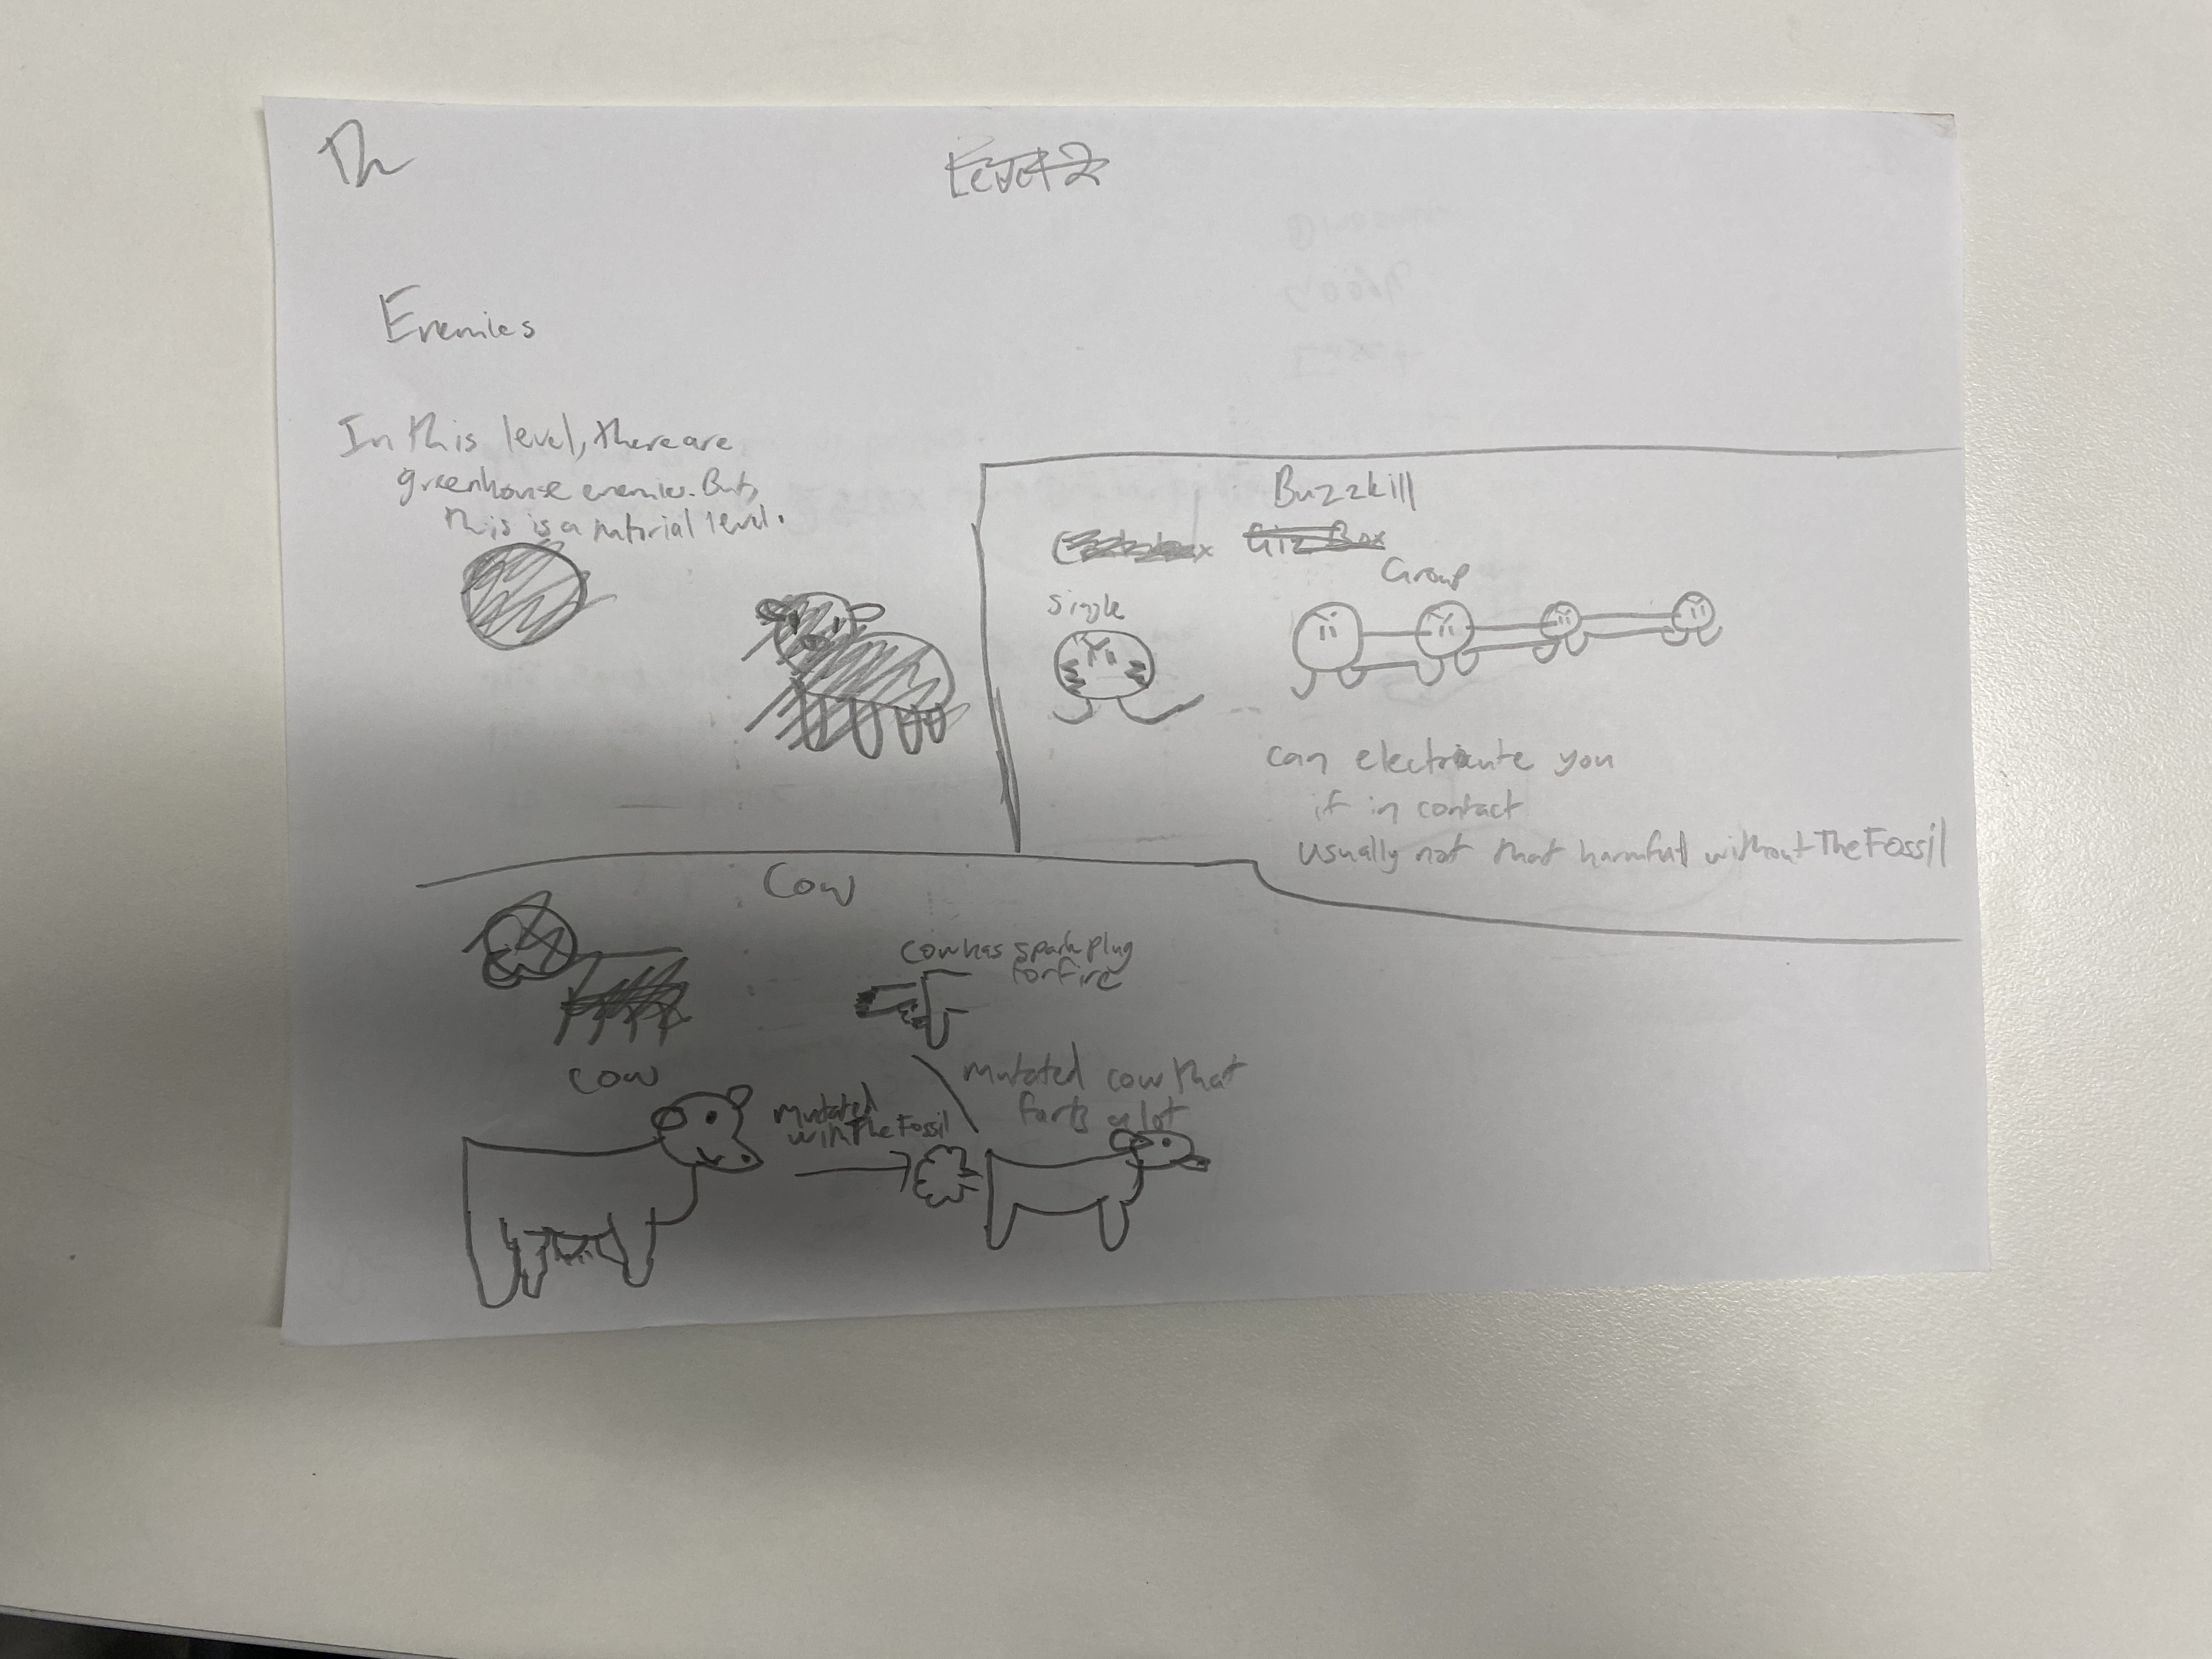 Th
Level 2
Enemies
In this level, there are
greenhouse enemies. But,
this is a tutorial level.
Buzzkill
Giz Box
Single
Group
can electricute you
if in contact
usually not that harmful without The Fossil
Cow
Cow has spark plug
for fire
Cow
mutated
with The Fossil
mutated cow that
farts a lot